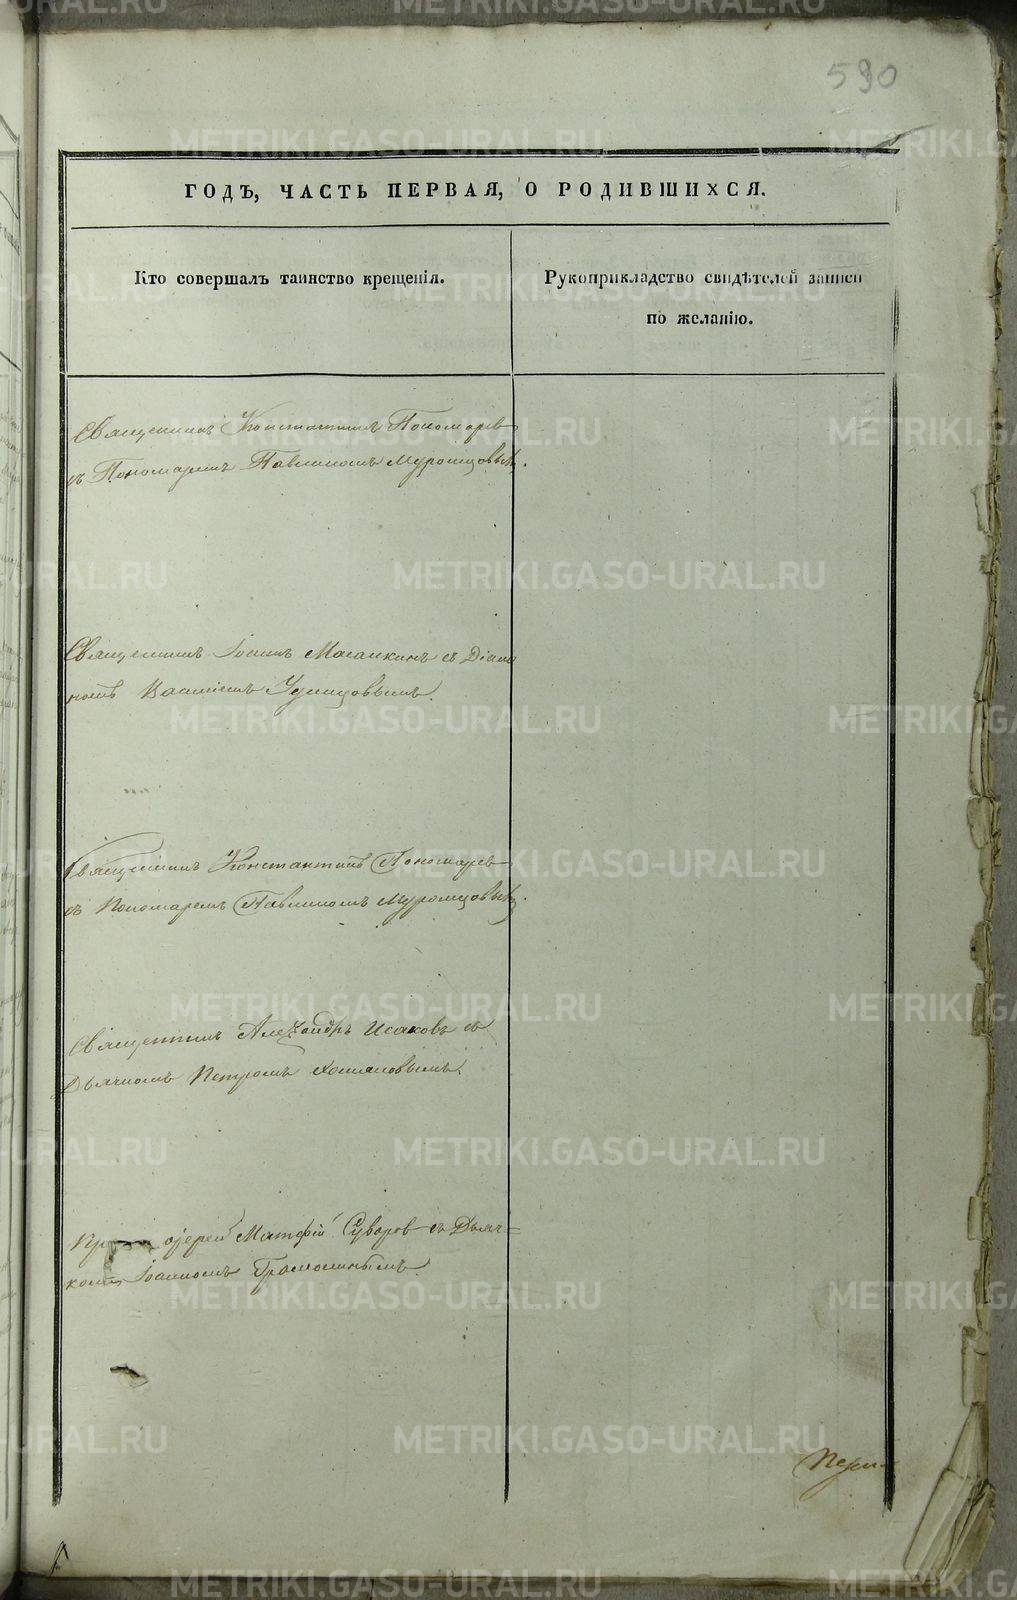 590
ГОДЪ, ЧАСТЬ ПЕРВАЯ, О РОДИВШИХСЯ.
Кто совершалъ таинство крещенія.
Рукоприкладство свидѣтелей записи
по желанію.
Священникъ Константинъ Пономарев
съ Пономаремъ Павлиномъ Муромцовымъ.
Священникъ Іоаннъ Масалкинъ съ Діако
номъ Удинцовымъ.
Священникъ Константинъ Пономарев
съ Пономаремъ Павлиномъ Муромцовымъ.
Священникъ Александръ Исаковъ съ
Дьячкомъ Петромъ Хомяковымъ.
Матфій Суворов съ Дьяч=
комъ Іоанномъ
METRIKI.GASO-URAL.RU